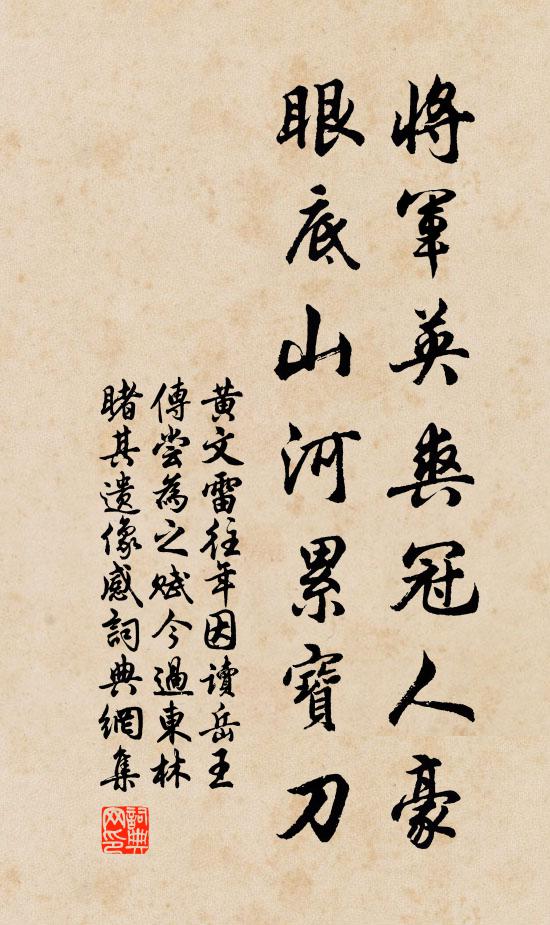 將軍英爽冠人豪
眼底山河累寶刀
黃文雷往年因讀岳王
傳嘗為之賦今過東林
睹其遺像感詞典網集
詞典网印